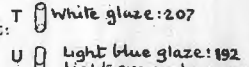 T White glaze: 207
U Light blue glaze: 192